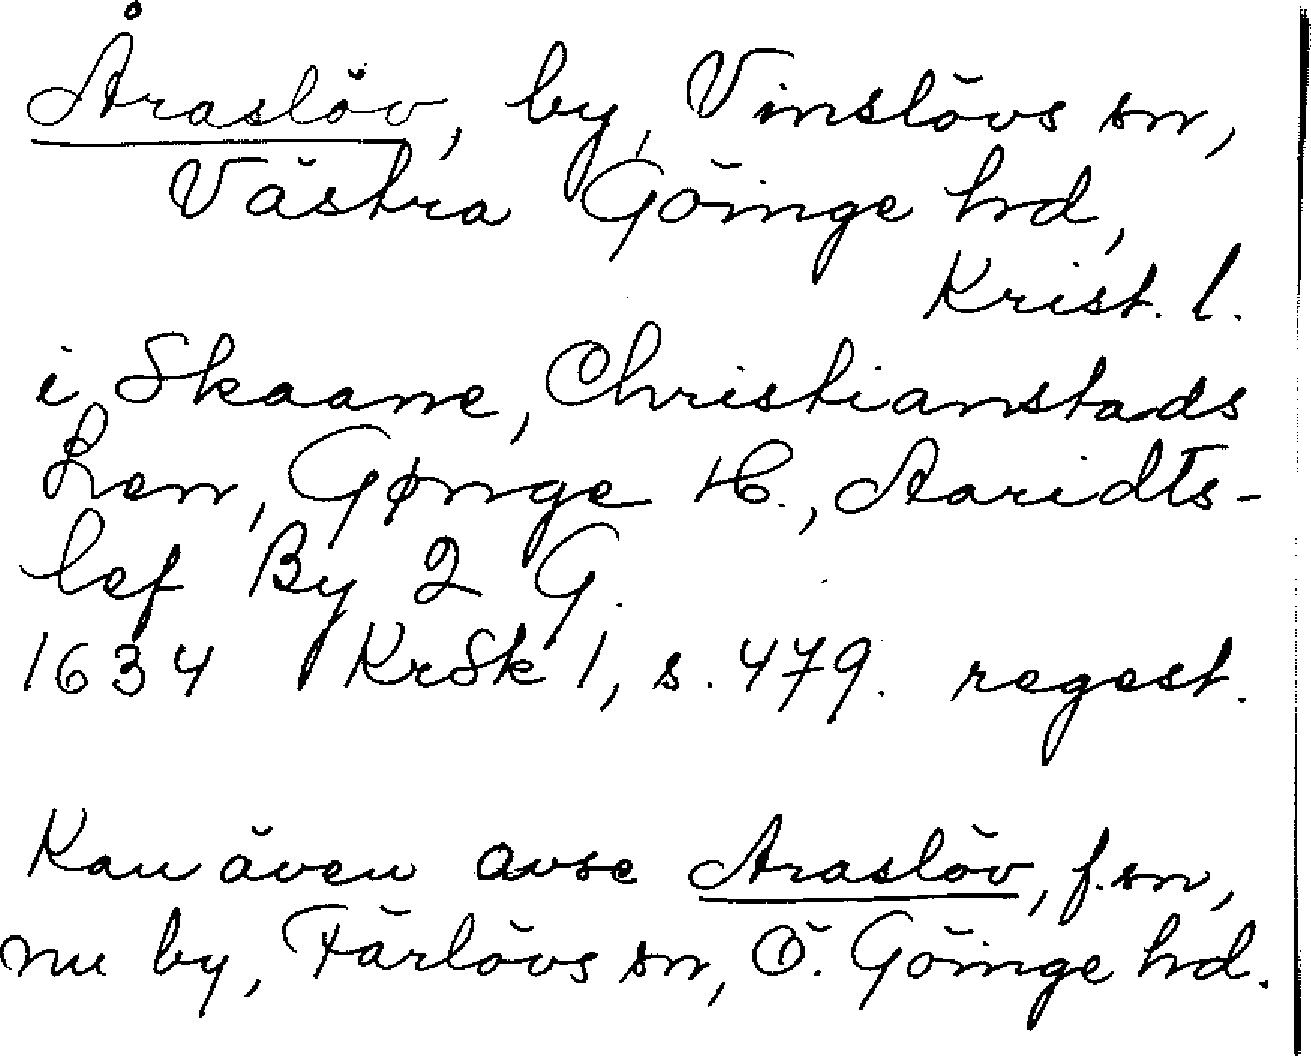 Åraslöv, by, Vinslövs sn,
Västra Göinge hd,
Krist. l.
i Skaane, Christianstads
Len, Gønge H., Aaridts-
lef By 2 G.
1634 KrSk 1, s. 479. regest.
Kan även avse Araslöv, f. sn,
nu by, Färlövs sn, Ö. Göinge hd.